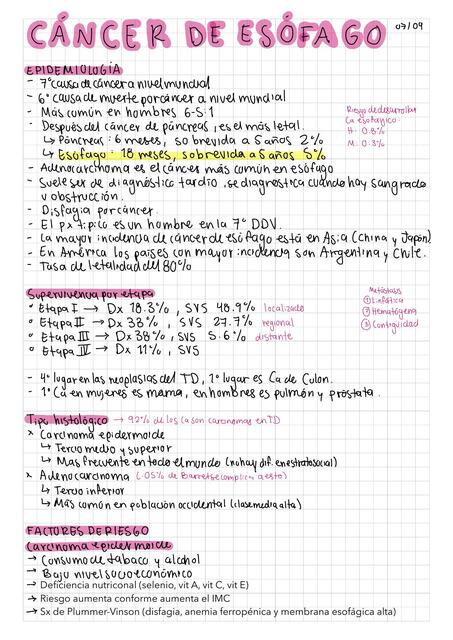 CÁNCER DE ESÓFAGO
07/09
EPIDEMIOLOGÍA
- 7º causa de cáncer a nivel mundial
- 6º causa de muerte por cáncer a nivel mundial
- Más común en hombres 6-5:1
- Después del cáncer de páncreas, es el más letal.
↳ Páncreas: 6 meses, sobrevida a 5 años 2%
↳ Esófago: 18 meses, sobrevida a 5 años 5%
Riesgo de desarrollar
Ca esofágico:
H: 0.8%
M: 0.3%
- Adenocarcinoma es el cáncer más común en esófago
- Suele ser de diagnóstico tardío, se diagnostica cuando hay sangrado
u obstrucción.
- Disfagia por cáncer.
- El px típico es un hombre en la 7º DDV.
- La mayor incidencia de cáncer de esófago está en Asia (China y Japón)
- En América los países con mayor incidencia son Argentina y Chile.
- Tasa de letalidad del 80%
Supervivencia por etapa
° Etapa I → Dx 18.3%, SV5 48.9% localizado
° Etapa II → Dx 33%, SV5 27.7% regional
° Etapa III → Dx 38%, SV5 5.6% distante
° Etapa IV → Dx 11%, SV5
Metástasis
① Linfática
② Hematógena
③ Contigüidad
- 4º lugar en las neoplasias del TD, 1º lugar es Ca de Colon.
- 1º Ca en mujeres es mama, en hombres es pulmón y próstata.
Tipo histológico → 92% de los ca son carcinomas en TD
x Carcinoma epidermoide
↳ Tercio medio y superior
↳ Más frecuente en todo el mundo (no hay dif. en estrato social)
x Adenocarcinoma (.05% de Barrett se complica a esto)
↳ Tercio inferior
↳ Más común en población occidental (clase media alta)
FACTORES DE RIESGO
Carcinoma epidermoide
→ Consumo de tabaco y alcohol
→ Bajo nivel socioeconómico
→ Deficiencia nutriconal (selenio, vit A, vit C, vit E)
→ Riesgo aumenta conforme aumenta el IMC
→ Sx de Plummer-Vinson (disfagia, anemia ferropénica y membrana esofágica alta)